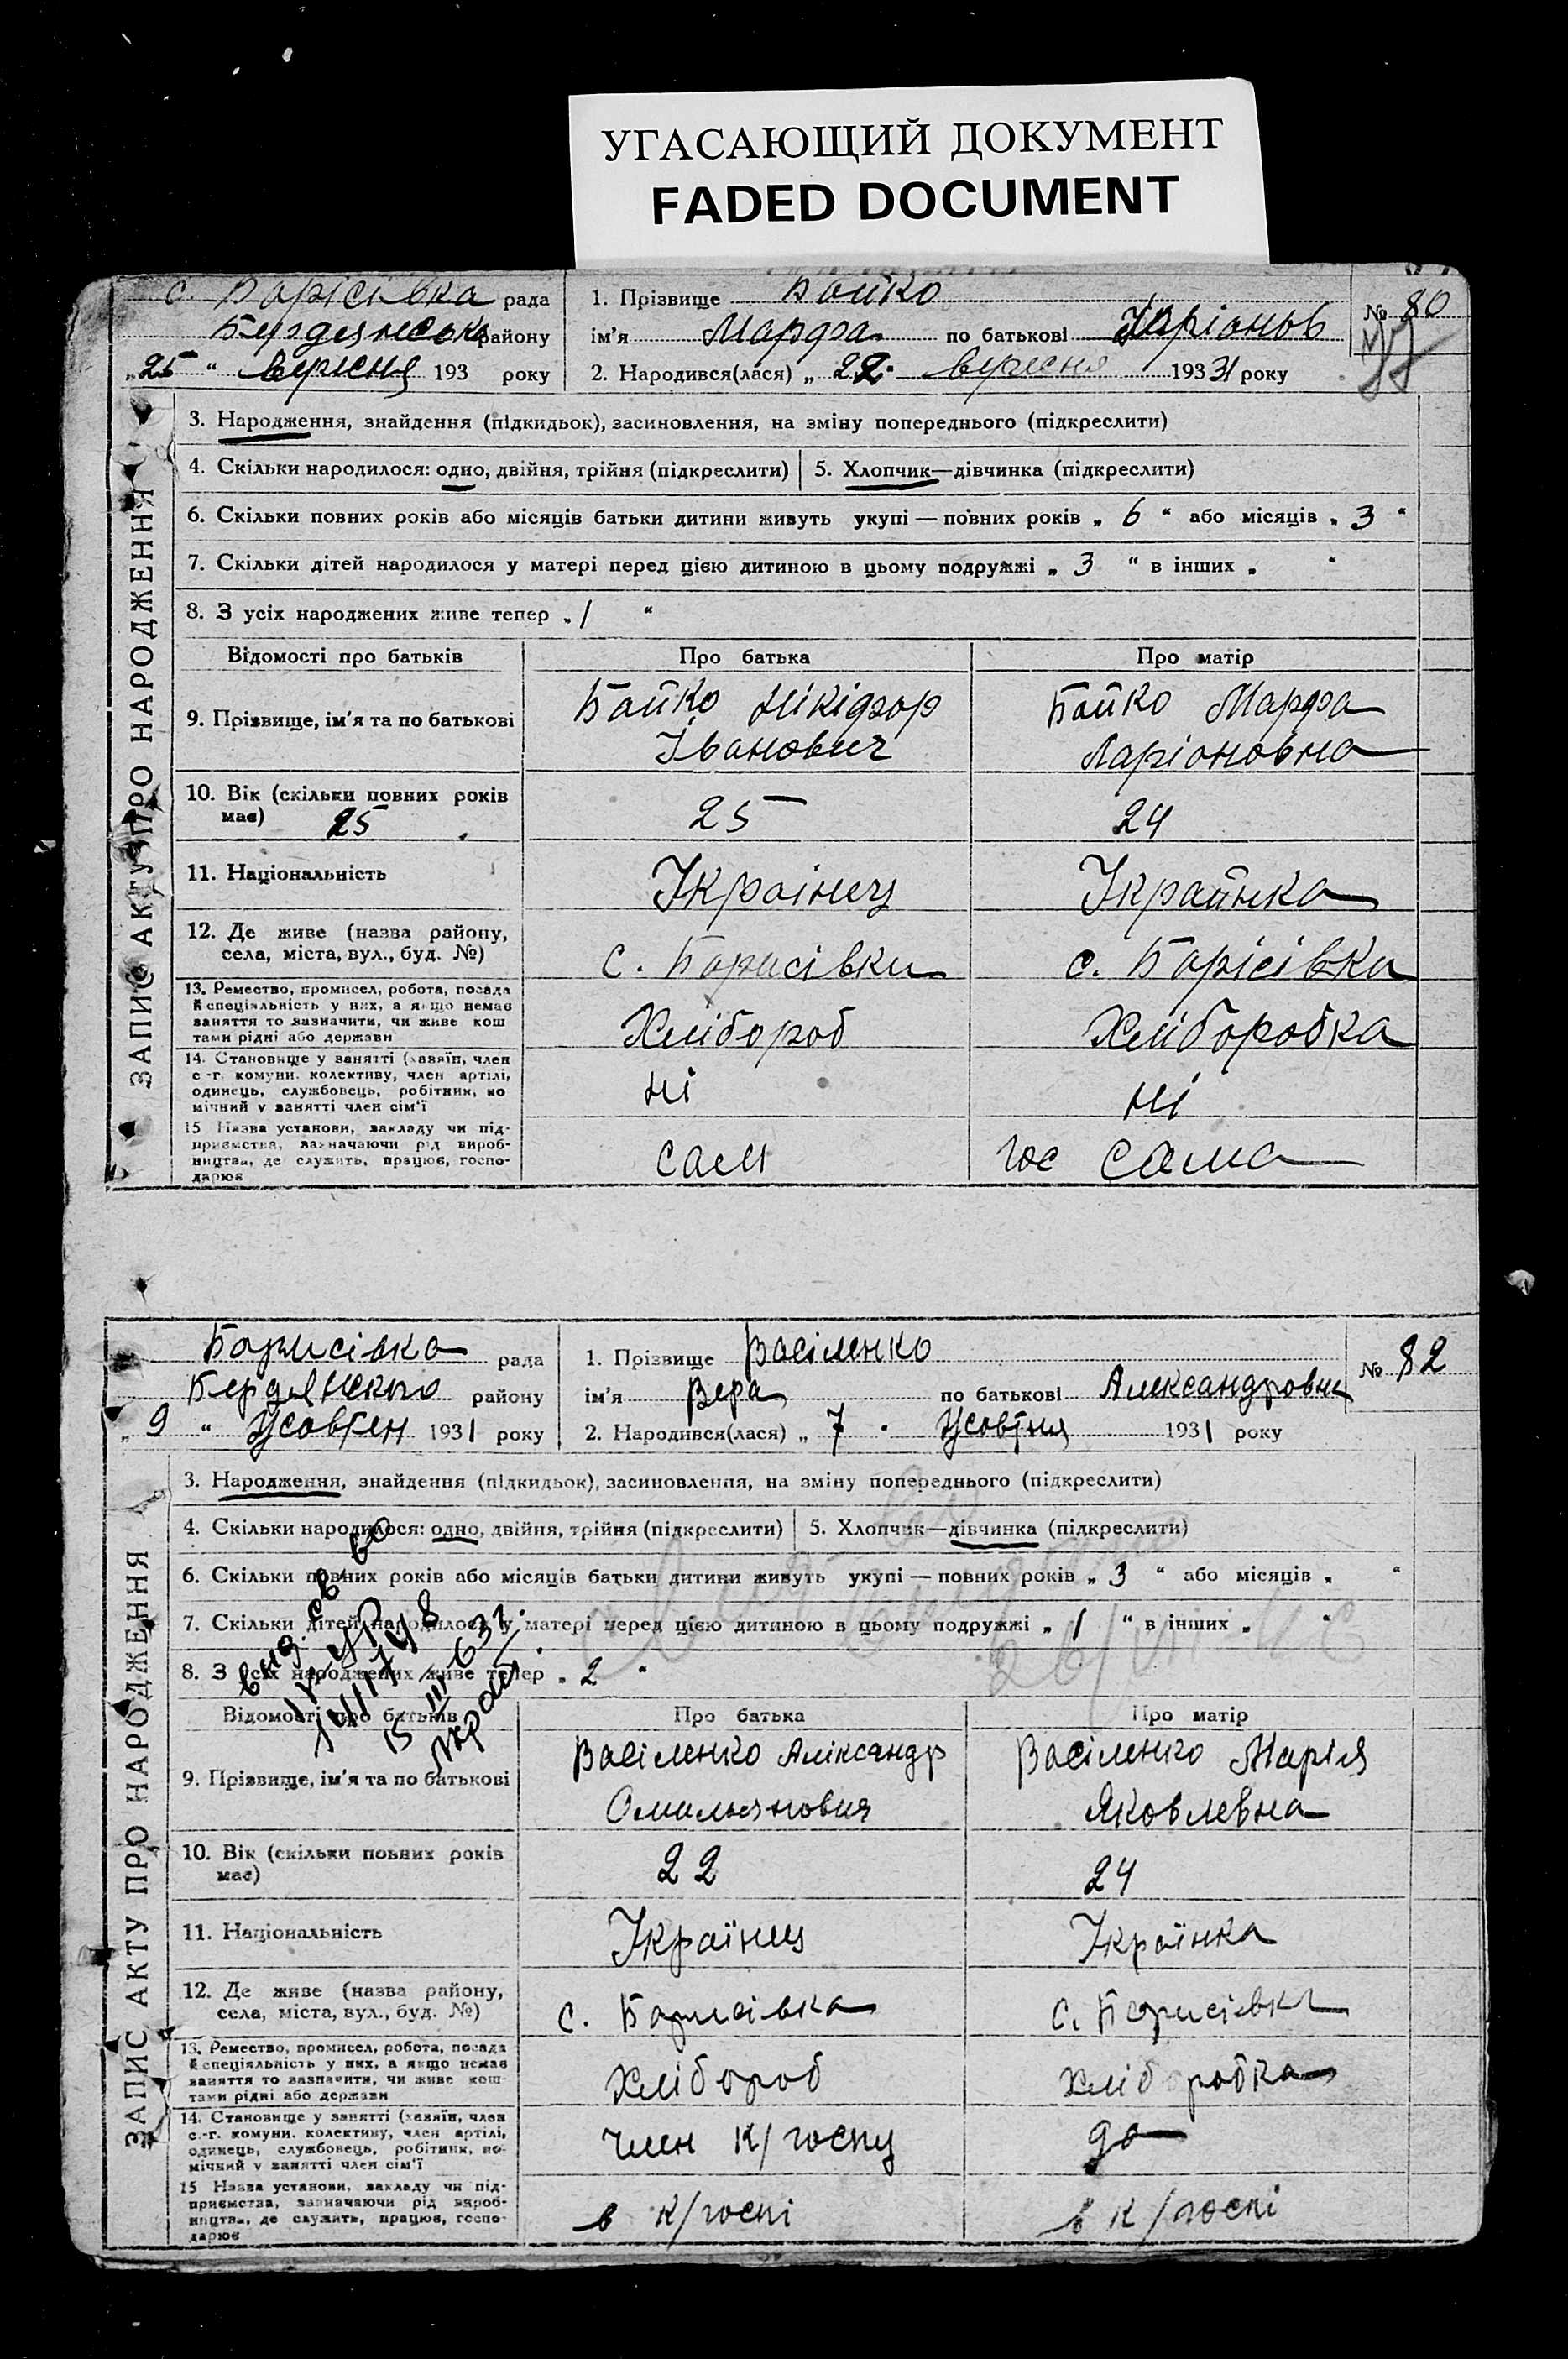 УГАСАЮЩИЙ ДОКУМЕНТ
FADED DOCUMENT
с. Борісівка рада
Бердянсько району
„25“ вересня 193 року
1. Прізвище Бойко
ім'я Марфа по батькові
2. Народився(лася) „22“ вересня 1931 року
№ 80
ЗАПИС АКТУ ПРО НАРОДЖЕННЯ
3. Народження, знайдення (підкидьок), засиновлення, на зміну попереднього (підкреслити)
4. Скільки народилося: одно, двійня, трійня (підкреслити)
5. Хлопчик—дівчинка (підкреслити)
6. Скільки повних років або місяців батьки дитини живуть укупі — повних років „ 6 “ або місяців „ 3 “
7. Скільки дітей народилося у матері перед цією дитиною в цьому подружжі „ 3 “ в інших „ “
8. З усіх народжених живе тепер „ 1 “
Відомості про батьків Про батька Про матір
9. Прізвище, ім'я та по батькові
Бойко Нікіфор
Іванович
Бойко Марфа
Ларіоновна
10. Вік (скільки повних років
має) 25
25
24
11. Національність
Україінец
Украйнка
12. Де живе (назва району,
села, міста, вул., буд. №)
с. Борисівки
с. Борісівка
13. Ремество, промисел, робота, посада
й спеціяльність у них, а якщо немає
заняття то зазначити, чи живе кош
тами рідні або держави
Хлібороб
Хліборобка
14. Становище у занятті (хазяїн, член
с.-г. комуни. колективу, член артілі,
одинець, службовець, робітник, по
мічний у занятті член сім'ї
ні
ні
15 Назва установи, закладу чи під-
приємства, зазначаючи рід вироб-
ництва, де служить, працює, госпо-
дарює
сам
гос сама
Борисівка рада
Бердянского району
„ 9 “ Жовтен 1931 року
1. Прізвище Васіленко
ім'я Вера по батькові Александровна
2. Народився(лася) „ 7 “ Жовтня 1931 року
№ 82
ЗАПИС АКТУ ПРО НАРОДЖЕННЯ
3. Народження, знайдення (підкидьок), засиновлення, на зміну попереднього (підкреслити)
4. Скільки народилося: одно, двійня, трійня (підкреслити)
5. Хлопчик—дівчинка (підкреслити)
6. Скільки повних років або місяців батьки дитини живуть укупі — повних років „ 3 “ або місяців „ “
7. Скільки дітей народилося у матері перед цією дитиною в цьому подружжі „ 1 “ в інших „ “
8. З усіх народжених живе тепер „ 2 “
Відомості про батьків Про батька Про матір
9. Прізвище, ім'я та по батькові
Васіленко Аліксандр
Омильянович
Васіленко Марія
Яковлевна
10. Вік (скільки повних років
має)
22
24
11. Національність
Українец
Українка
12. Де живе (назва району,
села, міста, вул., буд. №)
с. Борисівка
с. Борисівка
13. Ремество, промисел, робота, посада
й спеціяльність у них, а якщо немає
заняття то зазначити, чи живе кош-
тами рідні або держави
Хлібороб
14. Становище у занятті (хазяїн, член
с.-г. комуни. колективу, член артілі,
одинець, службовець, робітник, по-
мічний у занятті член сім'ї
член к/госпу
до
15 Назва установи, закладу чи під-
приємства, зазначаючи рід вироб-
ництва, де служить, працює, госпо-
дарює
в к/госпі
в к/госпі